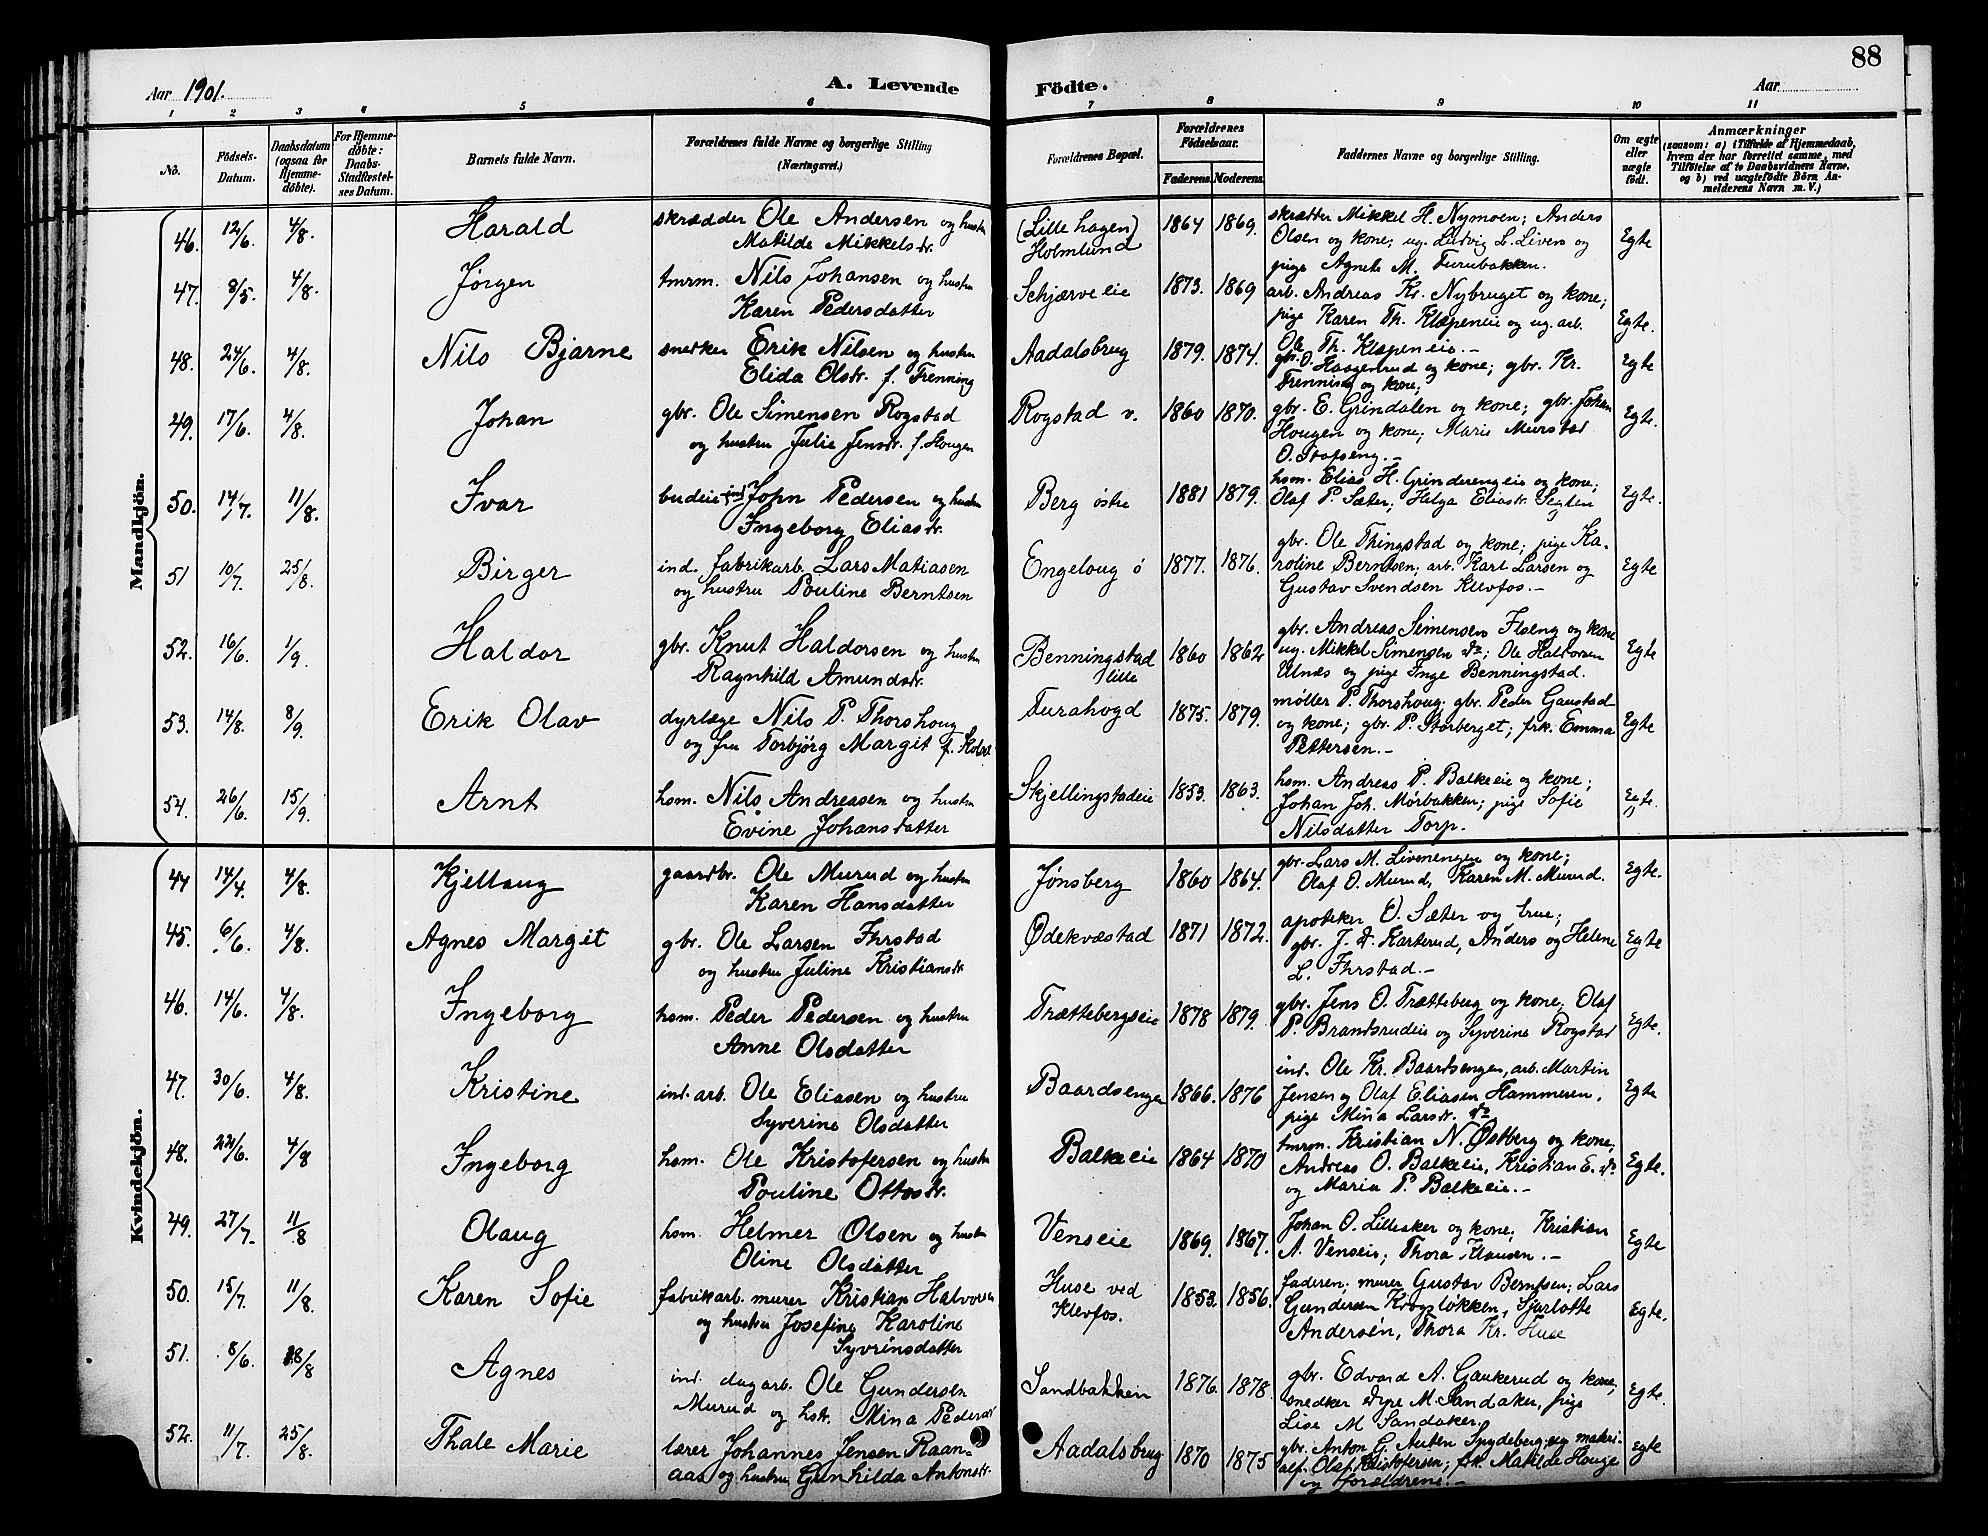 88
Aar 1901.
A. Levende Födte.
Aar
1 2 3 4 5 6 7 8 9 10 11
No.
Födsels-Datum.
Daabsdatum (ogsaa for Hjemme-döbte).
For Hjemme-döbte: Daabs-Stadfæstelses Datum.
Barnets fulde Navn.
Forældrenes fulde Navne og borgerlige Stilling (Næringsvei.)
Forældrenes Bopæl.
Forældrenes Födselsaar.
Faderens. Moderens.
Faddernes Navne og borgerlige Stilling.
Om ægte eller uægte födt.
Anmærkninger (saasom: a) i Tilfælde af Hjemmedaab, hvem der har forrettet samme, med Tilföielse af to Daabsvidners Navne. og b) ved uægtefödte Börn Anmelderens Navn m. V.)
Mandkjön.
46. 12/6. 4/8. Harald skrædder Ole Andersen og hustru (Lille hagen) 1864 1869. skrædder Mikkel H. Nymoen; Anders
Matilde Mikkelsdr. Holmlund Olsen og kone; ug. Ludvig L. Livers og Egte
pige Agnete M. Furubakken.
47. 8/5. 4/8. Jørgen tmrm. Nils Johansen og hustru Schjærveeie 1873. 1869 arb. Andreas Kr. Nybruget og kone;
Karen Pedersdatter pige Karen Th. Klæpeneie og ug. arb. Egte.
Ole Th. Klæpeneie.-
48. 24/6. 4/8. Nils Bjarne snerker Erik Nilsen og hustru Aadalsbrug 1879. 1874. gbr. O. Haagenrud og kone; gbr. Kr. Egte
Elida Olsdr. f. Frenning Frenning og kone;
49. 17/6. 4/8. Johan gbr. Ole Simensen Rogstad Rogstad v. 1860 1870. gbr. E. Grindalen og kone; gbr. Johan
og hustru Julie Jensdr. f. Hougen Hougen og kone; Marie Murstad Egte.
50. 14/7. 11/8. Ivar John Pedersen og hustru Berg østre 1881 1879. hsm. Elias H. Grinderengeie og kone; Egte.
Ingeborg Eliasdr. Olaf P. Sæter; Helga Eliasdr.
51 10/7. 25/8. Birger ind. fabrikarb. Lars Matiasen Engeloug ø 1877. 1876. gbr. Ole Thingstad og kone; pige Ka-
og hustru Pouline Berntsen roline Berntsen; arb. Karl Larsen og Egte
Gustav Svendsen Klevfos.-
52. 16/6. 1/9. Haldor gbr. Knut Haldorsen og hustru Benningstad lille 1860 1862 gbr. Andreas Simensen Flseng og kone
Ragnhild Amundsdr. ug. Mikkel Simensen do; Ole Halvorsen Egte
Ulnæs og pige Inge Benningstad.
53. 14/8. 8/9. Erik Olav dyrlæge Nils P. Thorshoug Furahogd 1875. 1879. møller P. Thorshoug; gbr. Peder Gaustad
og fru Torbjørg Margit og kone; gbr. P. Storberget; frk. Emma Egte
Pettersen.-
54. 26/6. 15/9. Arnt hsm. Nils Andreasen og hustru Skjellingstadeie 1853. 1863. hsm. Andreas P. Balkeeie og kone;
Evine Johansdatter Johan Joh. Mørbakken; pige Sofie Egte.
Nilsdatter Torp.
Kvindekjön.
44 14/4. 4/8. Kjellaug gaardbr. Ole Murud og hustru Jønsberg 1860 1864. gbr. Lars M. Livenengen og kone;
Karen Hansdatter Olaf O. Murud, Karen M. Murud. Egte.
45. 6/6. 4/8. Agnes Margit gbr. Ole Larsen Ihrstad Ødekvæstad 1871 1872. apoteker O. Sæter og frue;
og hustru Juline Kristiansdr. gbr. J. D. Karterud, Anders og Helene Egte
L. Ihrstad.-
46. 14/6. 4/8. Ingeborg hsm. Peder Pedersen og hustru Trættebergseie 1878 1879. gbr. Jens O. Trætteberg og kone. Olaf
Anne Olsdatter P. Brandsrudeie og Syverine Rogstad Egte.
47. 30/6. 4/8. Kristine ind. arb. Ole Eliasen og hustru Baardsengen 1866. 1876 ind. Ole Kr. Baardsengen, arb. Martin
Syverine Olsdatter Jensen og Olaf Eliasen Hammeren, Egte
pige Mina Larsdr. do
48. 22/6. 4/8 Ingeborg hsm. Ole Kristofersen og hustru Balkeeie 1864 1870 tmrm. Kristian N. Østberg og kone;
Pouline Ottosdr. Andreas O. Balkeeie, Kristian E. do Egte.
og Maria P. Balkeeie.-
49. 27/7. 11/8 Olaug hsm. Helmer Olsen og hustru Venseie 1869. 1867. Johan O. Lilleaker og kone; Kristian
Oline Olsdatter A. Venseie; Thora Klausen.- Egte
50. 15/7. 11/8. Karen Sofie fabrikarb. murer Kristian Halvorsen Huse ved Klevfos. 1853. 1856. faderen; murer Gustav Berntsen; Lars
og hustru Josefine Karoline Gundersen Krogsløkken, Sjarlotte Egte.
Syvrinsdatter Andersén, Thora Kr. Huse
51. 8/6. 18/8 Agnes ind. dagarb. Ole Gundersen Sandbakken 1876. 1878. gbr. Edvard A. Gaukerud og kone,
Murud og hstr. Mina Pedersdr. snedker Dyre M. Sandaker, pige Egte.
Lise M Sandaker.
52. 11/7. 25/8. Thale Marie lærer Johannes Jensen Raan- Aadalsbrug 1870 1875 gbr. Anton G. Auten Spydeberg, og materi- Egte
aas og hustru Gunhilda Antonsdr. alf. Olaf Kristofersen; frk. Matilde Houge
og forældrene.-